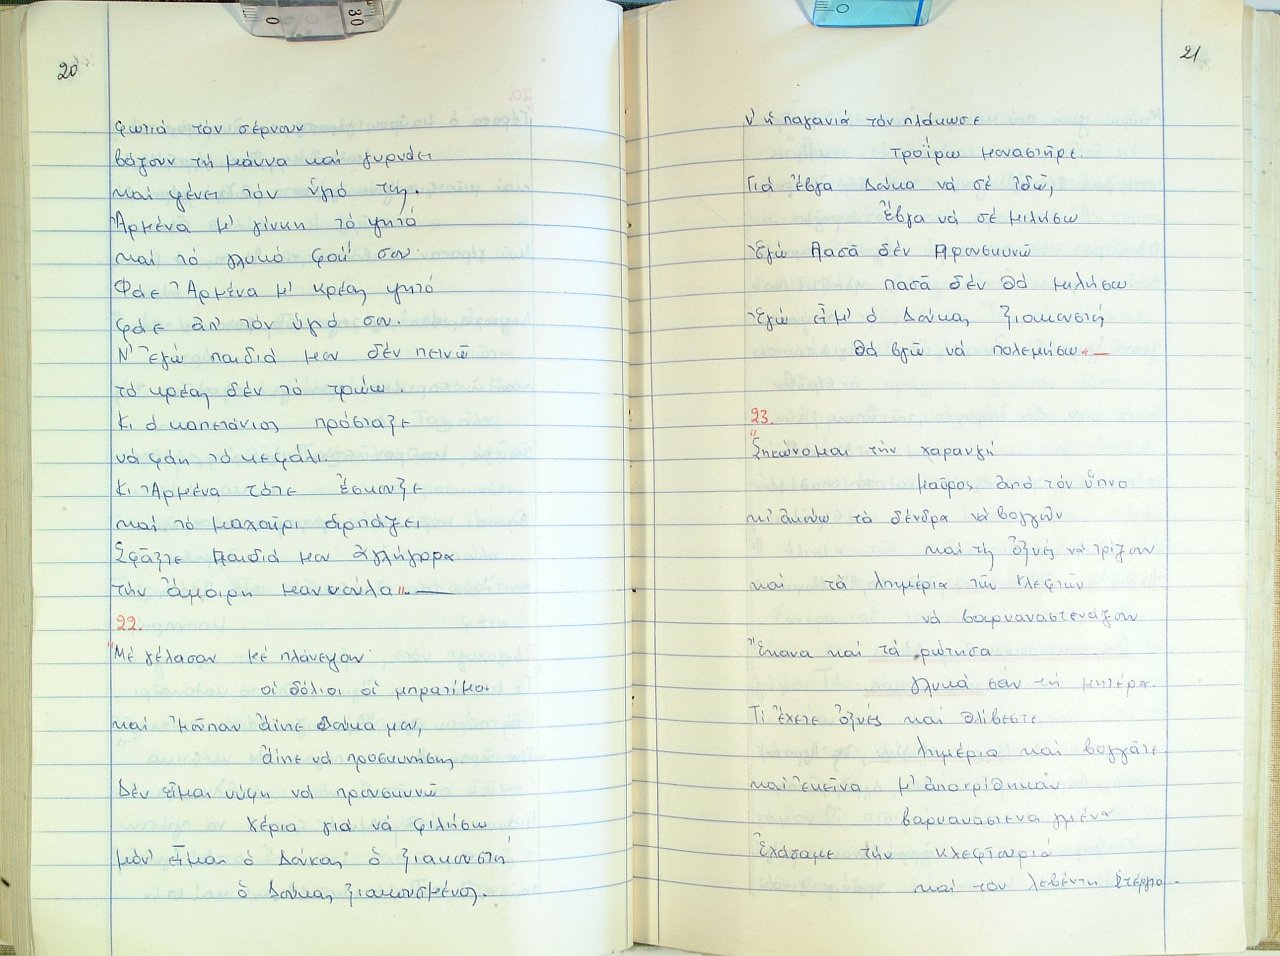 20
φωτιά τόν σέρνουν
βάζουν τή μάννα καί γυρνάει
καί ψένει τόν ὑγιό της.
Ἀρμένα μ' γίνκη τό ψητό
καί τό γλυκό φαΐ σου
Φάε Ἀρμένα μ' κρέας ψητό
φάε ἀπ' τόν ὑγιό σου.
Ν' ἐγώ παιδιά μου δέν πεινῶ
τό κρέας δέν τό τρώω.
Κι ὁ καπετάνιος πρόσταξε
νά φάη τό κεφάλι.
Κι Ἀρμένα τότε ἔσκουξε
καί τό μαχαῖρι ἁρπάζει
Σφάξτε παιδιά μου ἀγλήγορα
τήν ἄμοιρη μαννούλα"
22.
"Μέ γέλασαν μέ πλάνεψαν
οἱ δόλιοι οἱ μπρατίμοι
καί μοῦπαν ἄϊντε Δούκα μου,
ἄϊντε νά προσκυνήσης
Δέν εἶμαι νύφη νά προυσκυνῶ
χέρια γιά νά φιλήσω
μόν' εἶμαι ὁ Δούκας ὁ ξιακουστή
ὁ Δούκας ξιακουσμένος.
21
Ν' ἡ παγανιά τόν πλάκωσε
τροΐρω μοναστῆρι.
Γιά ἔβγα Δούκα νά σέ ἰδῶ,
ἔβγα νά σέ μιλήσω
Ἐγώ Πασᾶ δέν προυσκυνῶ
πασᾶ δέν θά μιλήσω
Ἐγώ εἶμ' ὁ Δούκας ξιακουστή
θά βγῶ νά πολεμήσω"
23.
"Σηκώνομαι τήν χαραυγή
μαῦρος ἀπό τόν ὕπνο
κι ἀκούω τά δένδρα νά βογγοῦν
καί τίς ὀξυές νά τρίζουν
καί τά λημέρια τῶν κλεφτῶν
νά βαρυαναστενάζουν
Ἔκανα καί τά ρώτησα
γλυκά σάν τή μητέρα.
Τί ἔχετε ὀξυές καί θλίβεστε
λημέρια καί βογγᾶτε
καί ἐκεῖνα μ' ἀποκρίθηκαν
βαρυαναστεναγμένα
Ἐχάσαμε τήν κλεφτουριά
καί τόν λεβέντη Στέργιο.